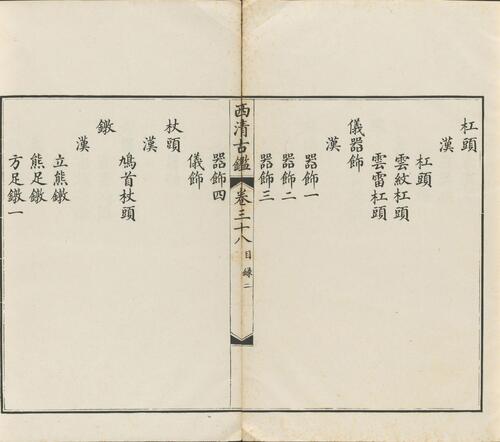 杠頭
漢
杠頭
雲紋杠頭
雲雷杠頭
儀器飾
漢
器飾一
器飾二
器飾三
西清古鑑 卷三十八 目錄 二
器飾四
儀飾
杖頭
漢
鳩首杖頭
鐓
漢
立熊鐓
熊足鐓
方足鐓一